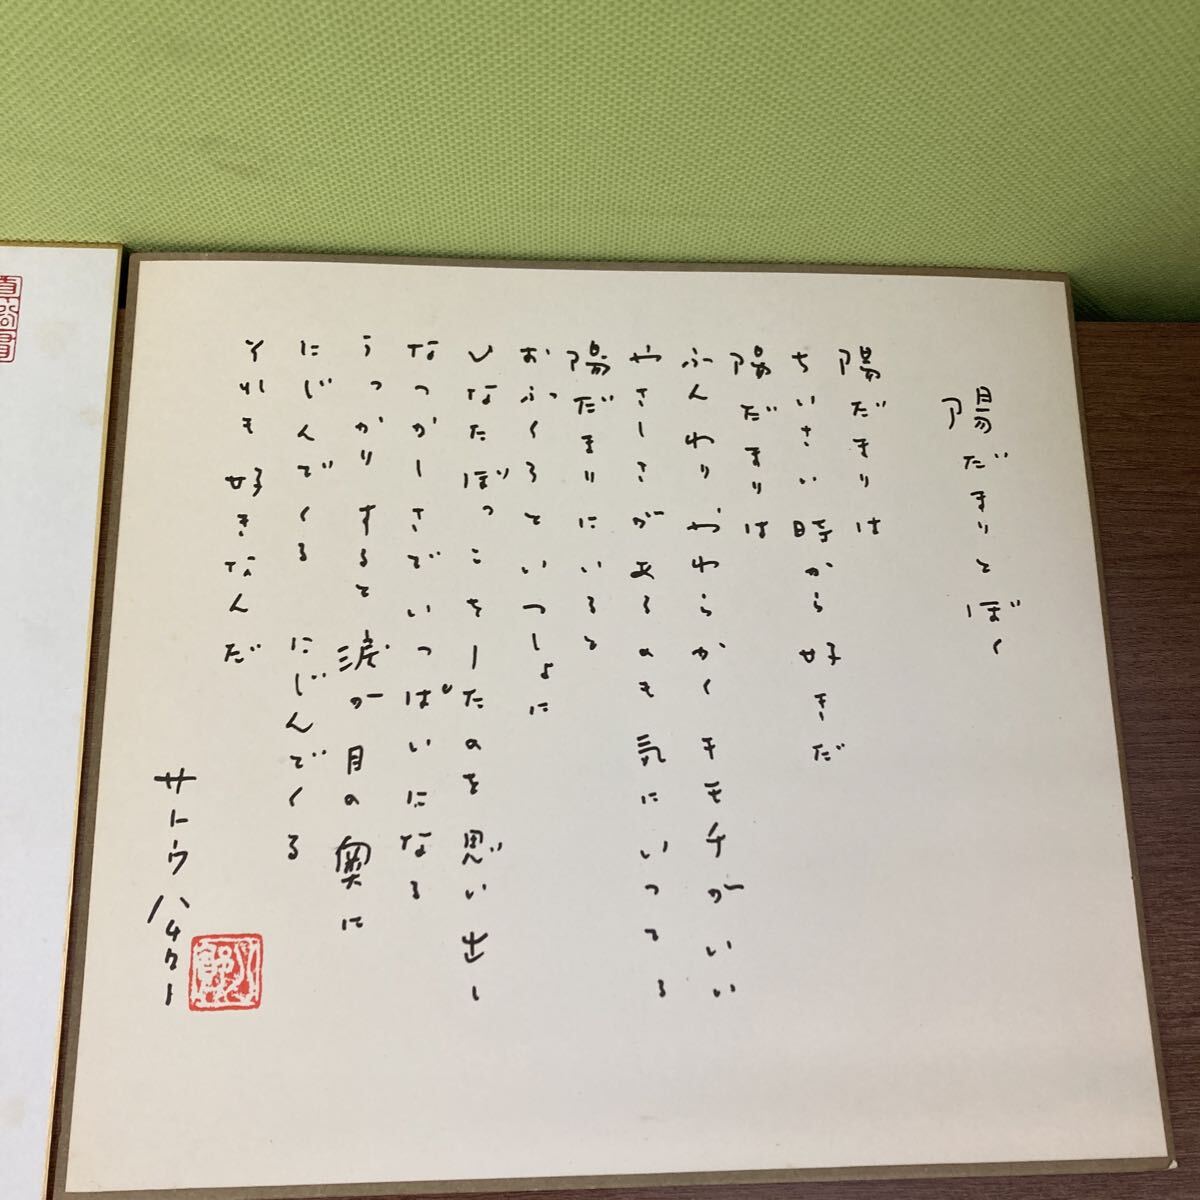 陽だまりとぼく
陽だまりは
ちいさい時から好きだ
陽だまりは
ふんわりやわらかくキモチがいい
やさしさがあるのも気にいってる
陽だまりにいると
おふくろといっしょに
ひなたぼっこをしたのを思い出し
なつかしさでいっぱいになる
うっかりすると涙が目の奥に
にじんでくる にじんでくる
それも好きなんだ
サトウハチロー